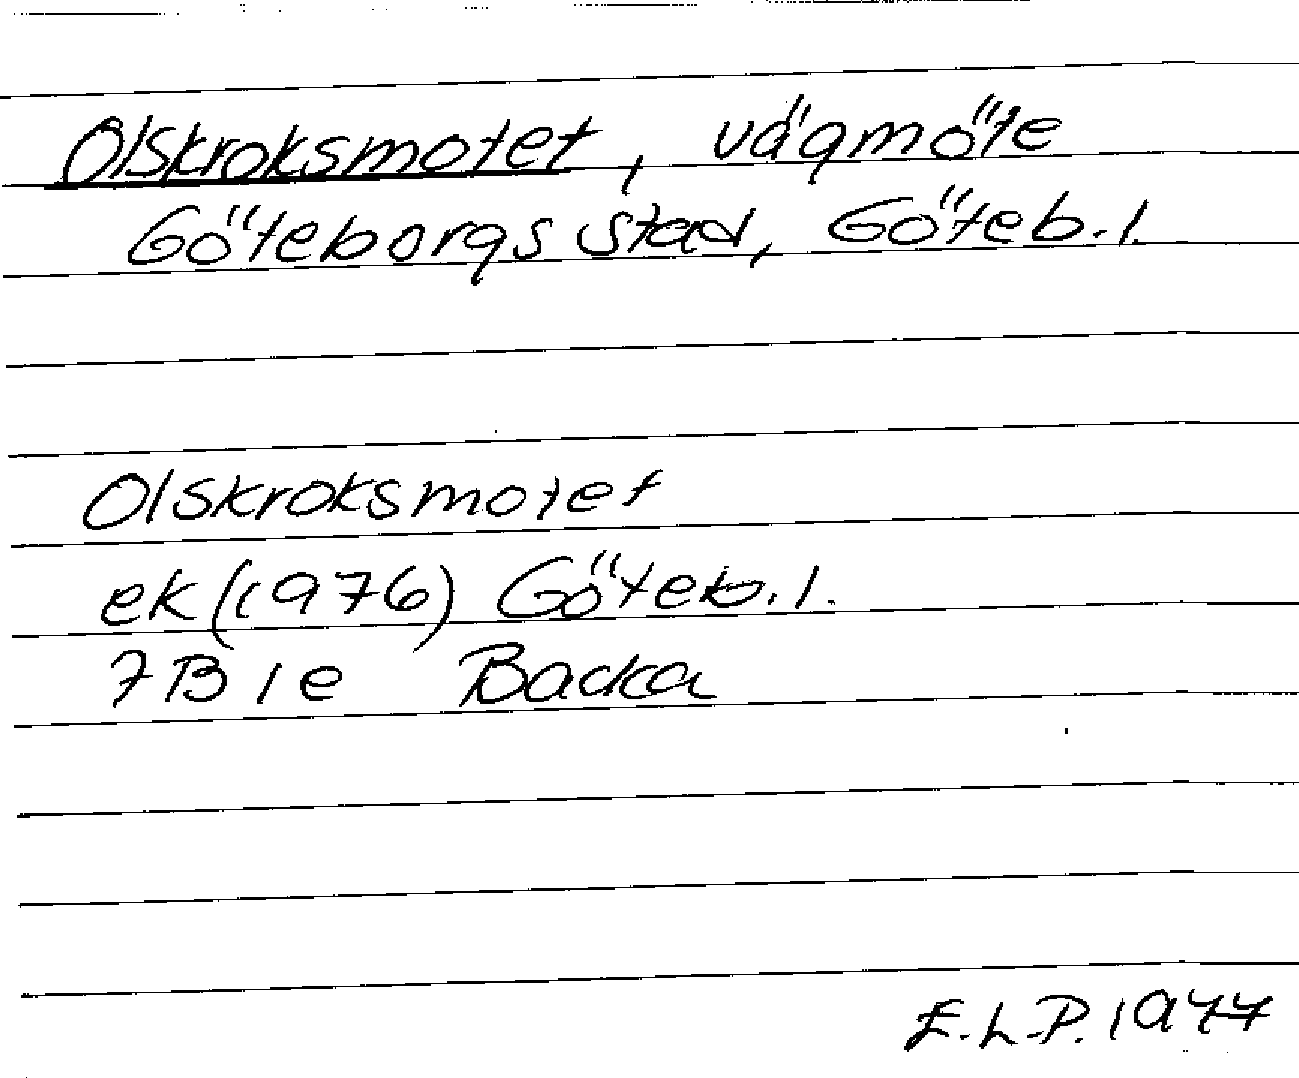 Olskroksmotet, vägmöte
Göteborgs stad, Göteb.l.
Olskroksmotet
ek (1976) Göteb.l.
7B 1e Backa
E.L-P. 1977